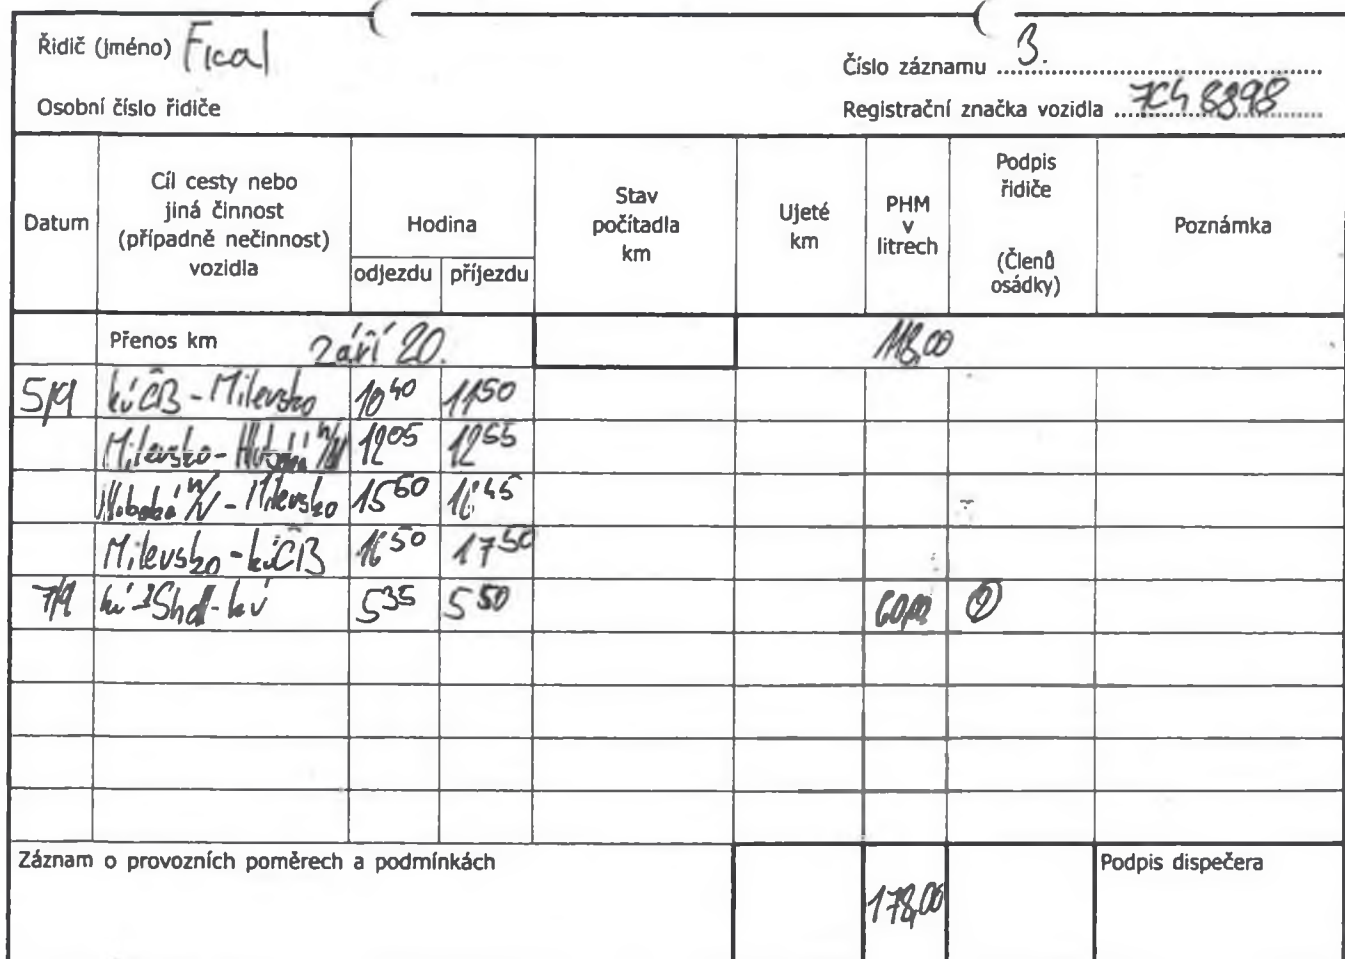 Řidič (jméno) Fical
Číslo záznamu 3.
Osobní číslo řidiče
Registrační značka vozidla 7C4 8898
Datum Cíl cesty nebo jiná činnost (případně nečinnost) vozidla Hodina odjezdu příjezdu Stav počítadla km Ujeté km PHM v litrech Podpis řidiče (Členů osádky) Poznámka
Přenos km září 20. 118,00
5/9 kúČB - Milevsko 10 40 11 50
Milevsko - Hluboká n/V 12 05 12 55
Hluboká n/V - Milevsko 15 50 16 45
Milevsko - kúČB 16 50 17 50
7/9 kú - - kú 5 35 5 50 60,00 2
Záznam o provozních poměrech a podmínkách
178,00
Podpis dispečera